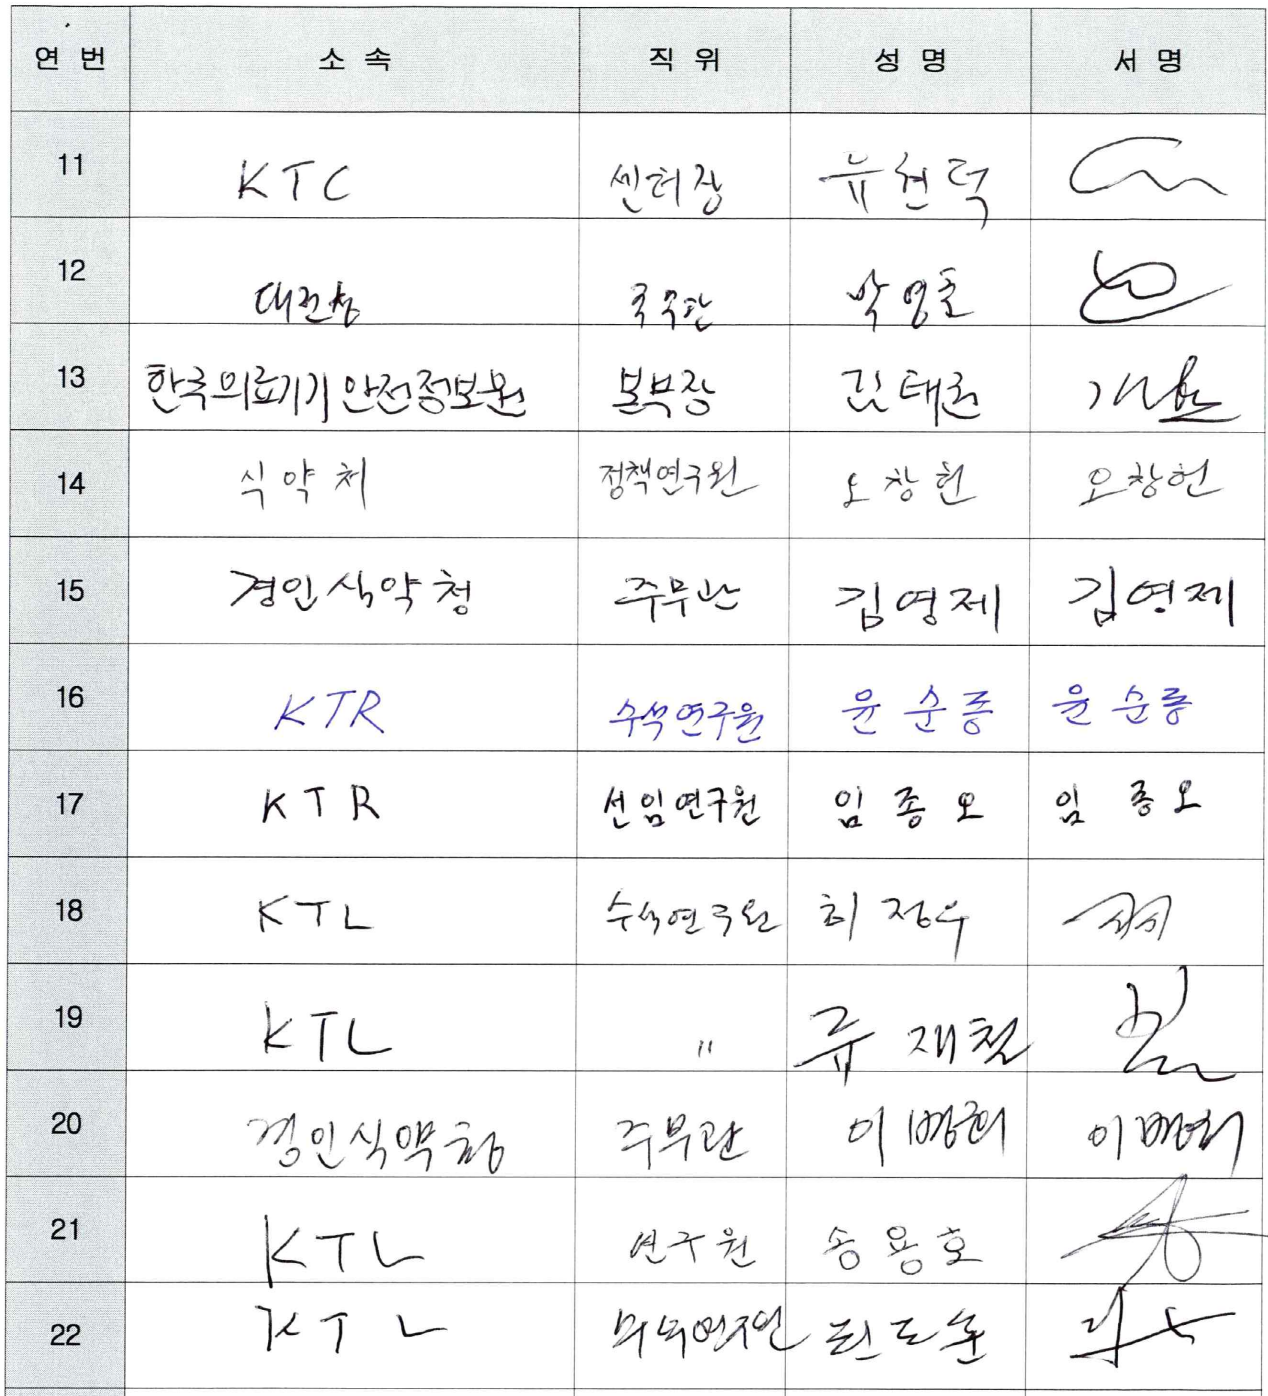 연 번 소 속 직 위 성 명 서 명
11 KTC 센터장 류현덕
12 대전청 주무관 박영준
13 한국의료기기안전정보원 본부장 김태권
14 식약처 정책연구원 오창헌 오창헌
15 경인식약청 주무관 김영제 김영제
16 KTR 수석연구원 윤순종 윤순종
17 KTR 선임연구원 임종오 임종오
18 KTL 수석연구원 최정우
19 KTL " 류재철
20 경인식약청 주무관 이병희 이병희
21 KTL 연구원 송용호
22 KTL